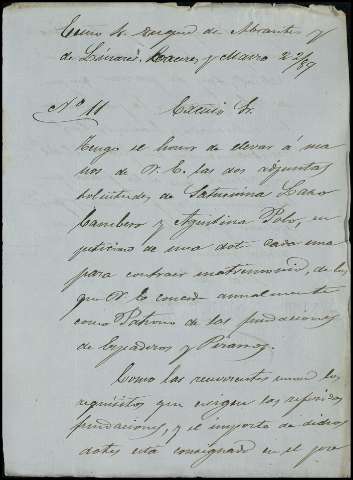 Exmo Sr Duque de Abrantes y
de Linares Cáceres y Marzo 22/89
Nº 11 Excmo Sr.
Tengo el honor de elevar á ma
nos de V. E. las dos adjuntas
solicitudes de Saturnina Lazo
Cambero y Agustina Polo, en
peticion de una dot cada una
para contraer matrimonio, de las
que V. E. conced annalmente
como Patrono de las fundaciones
de Espaderos y Peranos.
Como las recurrentes unen los
requisitos que exigen las referidas
fundaciones, y el importe de dichas
dotes está consignado en el pre